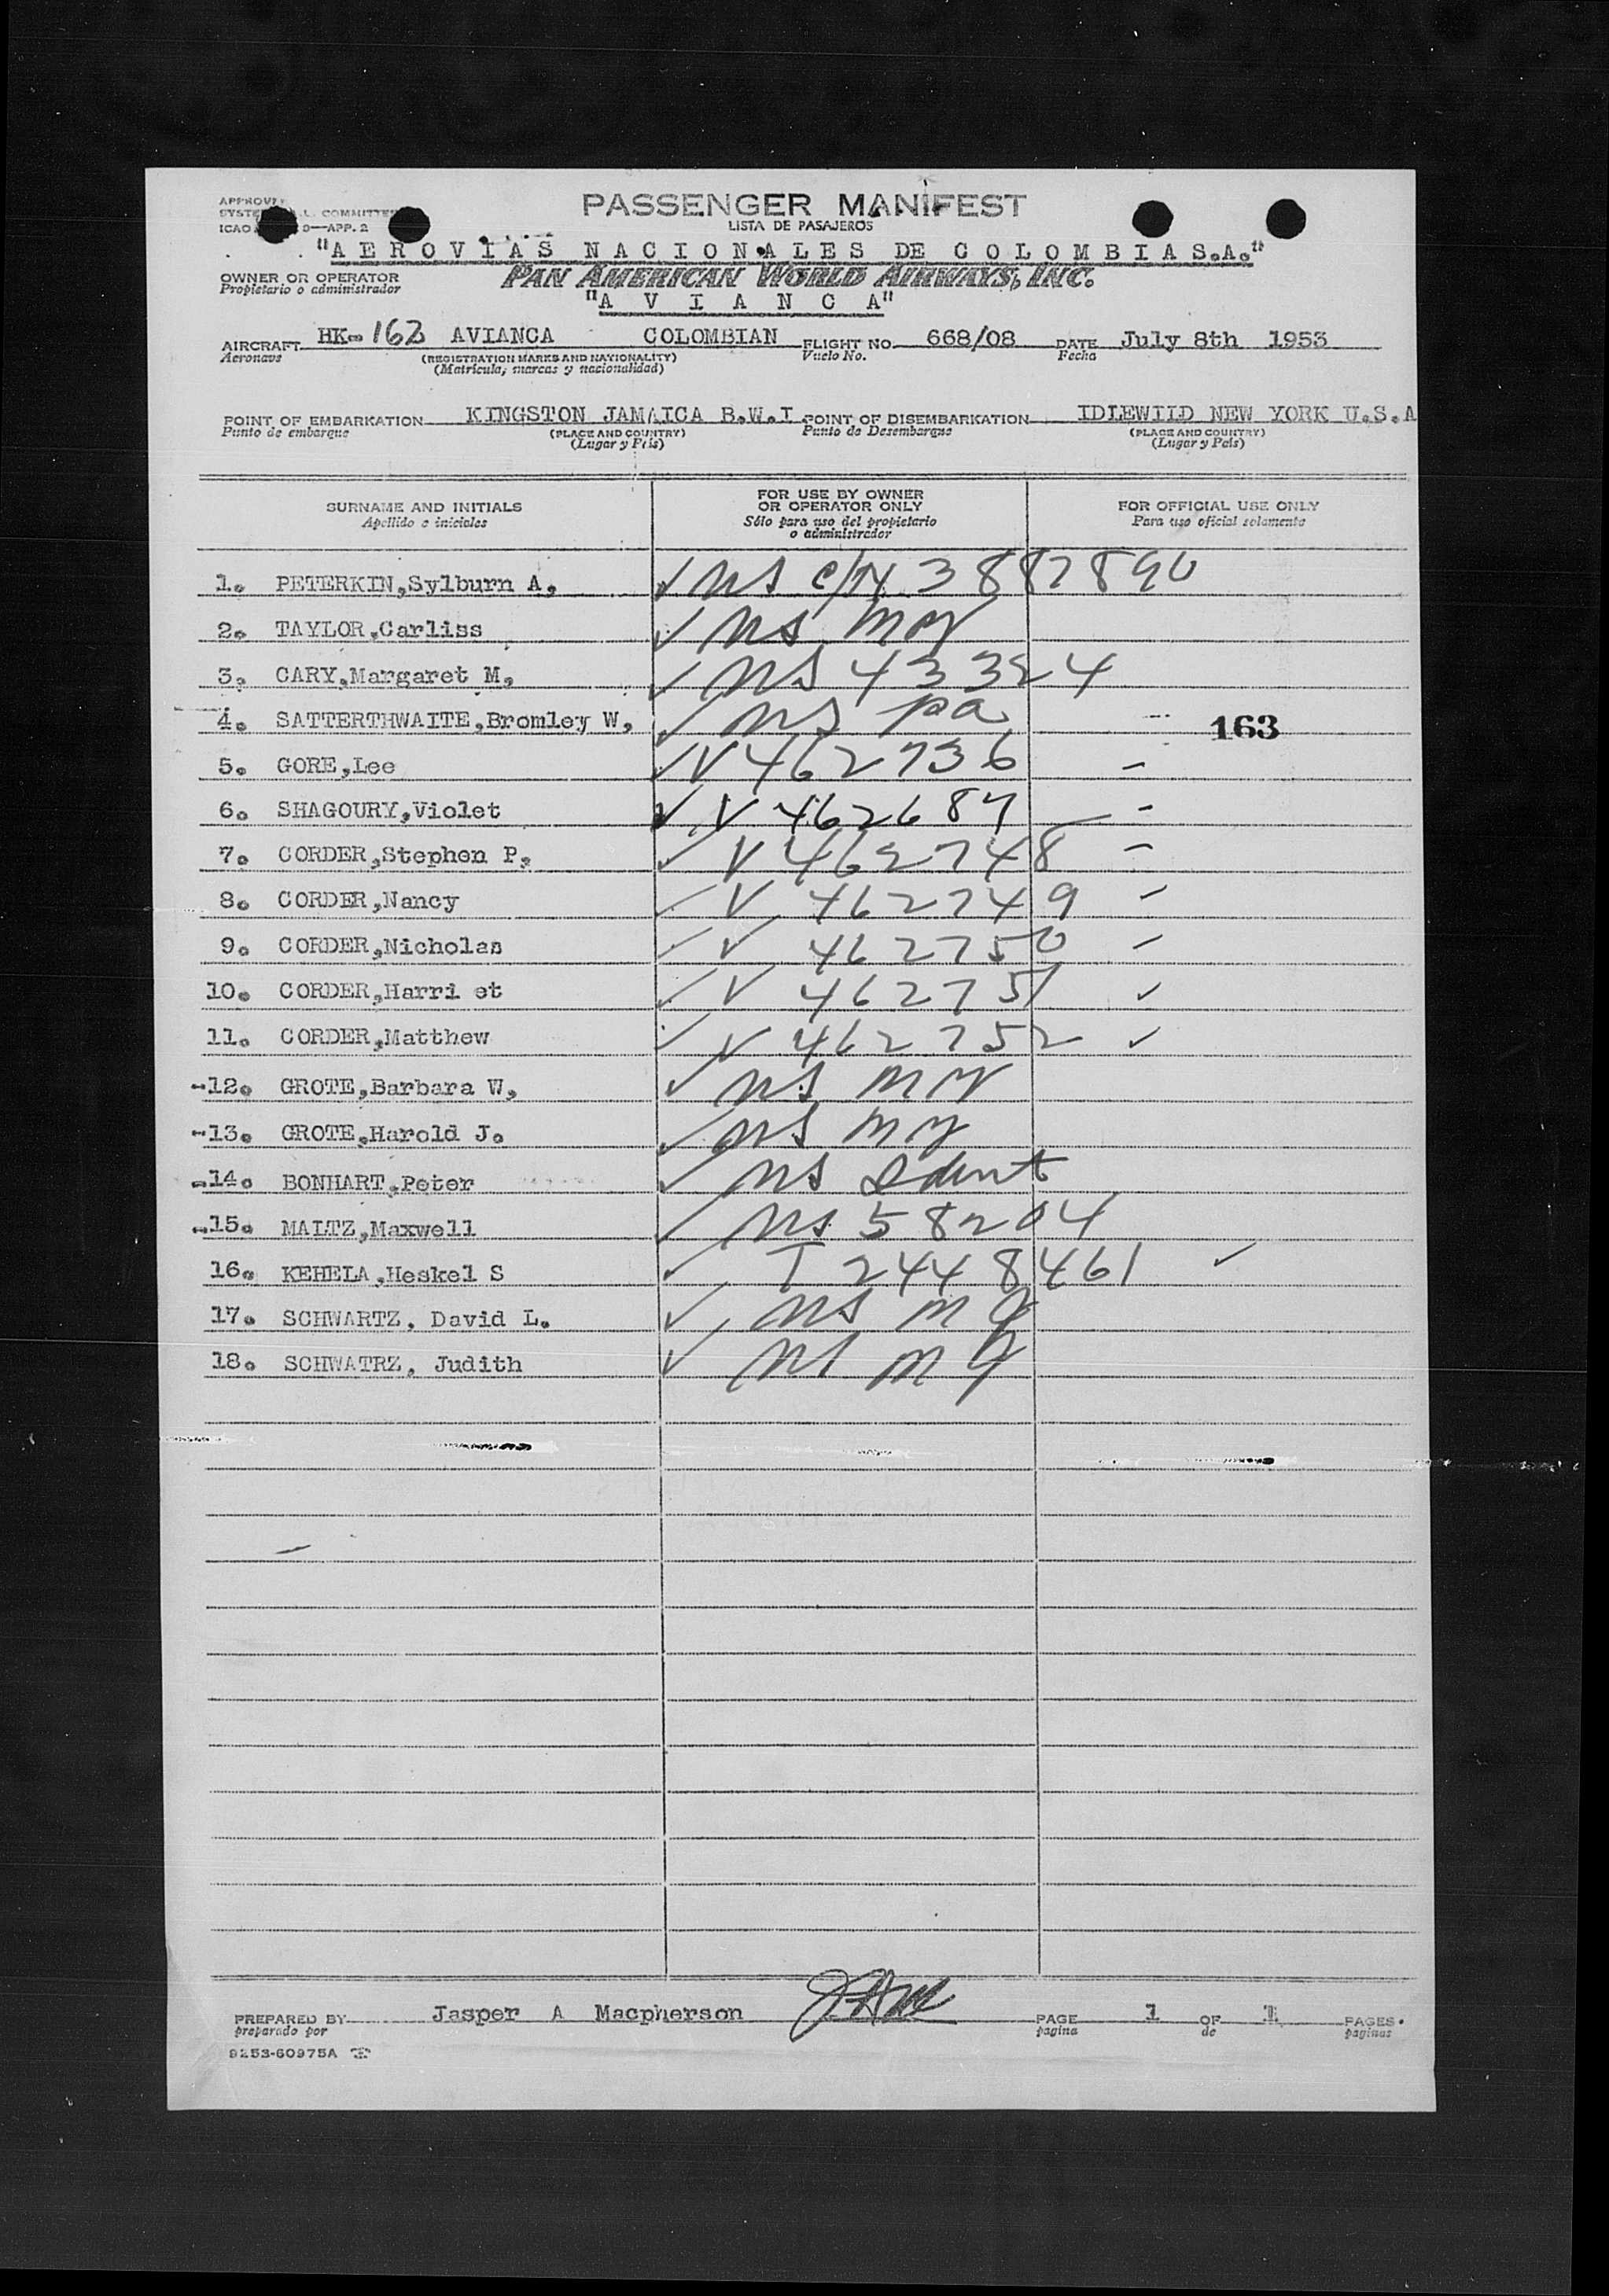 PASSENGER MANIFEST
LISTA DE PASAJEROS
"AEROVIAS NACIONALES DE COLOMBIA S.A."
OWNER OR OPERATOR
Propietario o administrador
PAN AMERICAN WORLD AIRWAYS, INC.
"AVIANCA"
AIRCRAFT HK-163 AVIANCA COLOMBIAN FLIGHT NO. 668/08 DATE July 8th 1953
Aeronave (REGISTRATION MARKS AND NATIONALITY) Vuelo No. Fecha
(Matrícula, marcas y nacionalidad)
POINT OF EMBARKATION KINGSTON JAMAICA B.W.I. POINT OF DISEMBARKATION IDLEWILD NEW YORK U.S.A
Punto de embarque (PLACE AND COUNTRY) Punto de Desembarque (PLACE AND COUNTRY)
(Lugar y País) (Lugar y País)
SURNAME AND INITIALS
Apellido e iniciales
FOR USE BY OWNER
OR OPERATOR ONLY
Sólo para uso del propietario
o administrador
FOR OFFICIAL USE ONLY
Para uso oficial solamente
1. PETERKIN,Sylburn A, ✓ NS C/N 3887890
2. TAYLOR,Carliss ✓ NS
3. CARY,Margaret M, ✓ NS 43324
4. SATTERTHWAITE,Bromley W, ✓ NS pa 163
5. GORE,Lee ✓ V 462736 -
6. SHAGOURY,Violet ✓ V 462687 -
7. CORDER,Stephen P, ✓ V 462748 -
8. CORDER,Nancy ✓ V 462749 -
9. CORDER,Nicholas ✓ V 462750 -
10. CORDER,Harri et ✓ V 462751 ✓
11. CORDER,Matthew ✓ V 462752 ✓
-12. GROTE,Barbara W, ✓ NS
-13. GROTE,Harold J. ✓ NS
-14. BONHART,Peter ✓ NS Ident
-15. MALTZ,Maxwell ✓ NS 58204
16. KEHELA,Heskel S ✓ T 2448461 ✓
17. SCHWARTZ, David L. ✓ NS
18. SCHWATRZ, Judith ✓ NS
PREPARED BY Jasper A Macpherson JAM PAGE 1 OF 1 PAGES.
preparado por página de páginas
9253-60975A